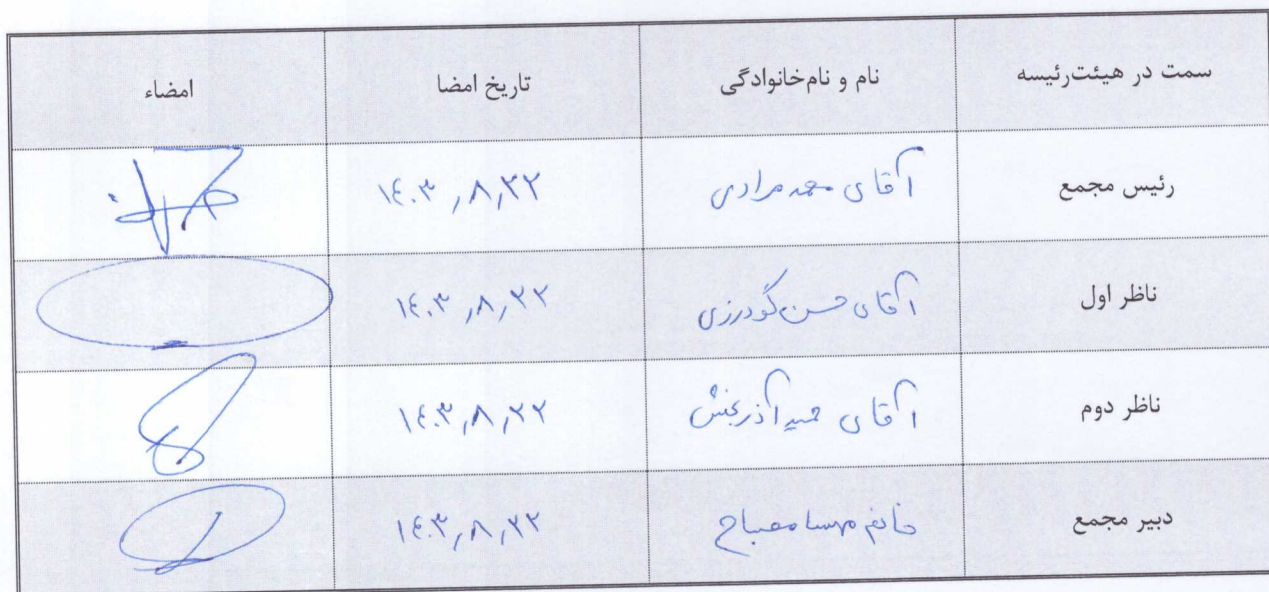 سمت در هیئت‌رئیسه نام و نام‌خانوادگی تاریخ امضا امضاء
رئیس مجمع آقای محمد مرادی ۱۴۰۳/۸/۲۲
ناظر اول آقای حسن گودرزی ۱۴۰۳/۸/۲۲
ناظر دوم آقای حمید آذربخش ۱۴۰۳/۸/۲۲
دبیر مجمع خانم مهسا مصباح ۱۴۰۳/۸/۲۲